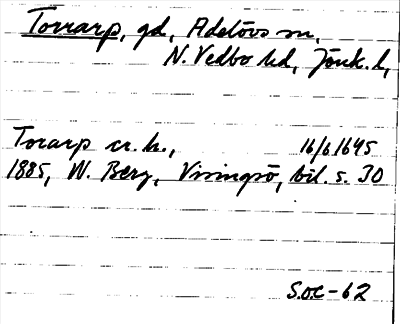 Torrarp, gd, Adelövs sn,
N. Vedbo hd, Jönk. l,
Torarp cr. h., 16/6 1645
1885, W. Berg, Visingsö, bil. s. 30
S.O.C-62